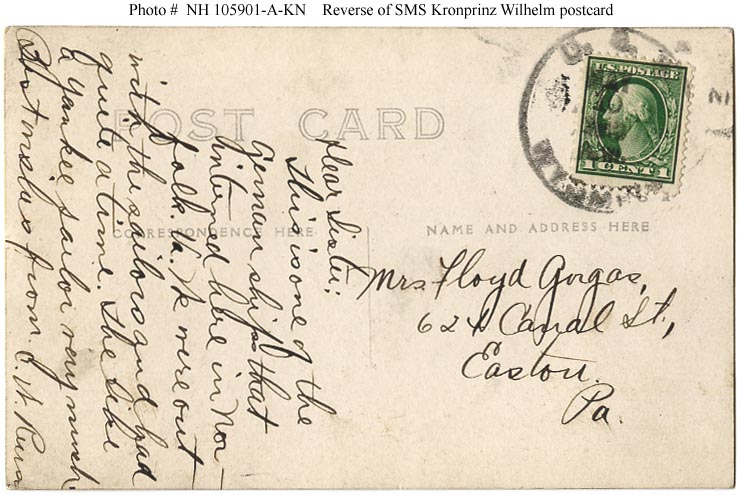 Photo # NH 105901-A-KN Reverse of SMS Kronprinz Wilhelm postcard
POST CARD
CORRESPONDENCE HERE
NAME AND ADDRESS HERE
U.S. POSTAGE
1 CENT 1
Dear Sister:
This is one of the
German ships that
intured here in Nor-
folk. Va. We were out
with the sailors and had
quite a time. She like
a Yankee sailor very much.
from
Mrs. Floyd Gorgas,
Canal St.,
Easton.
Pa.